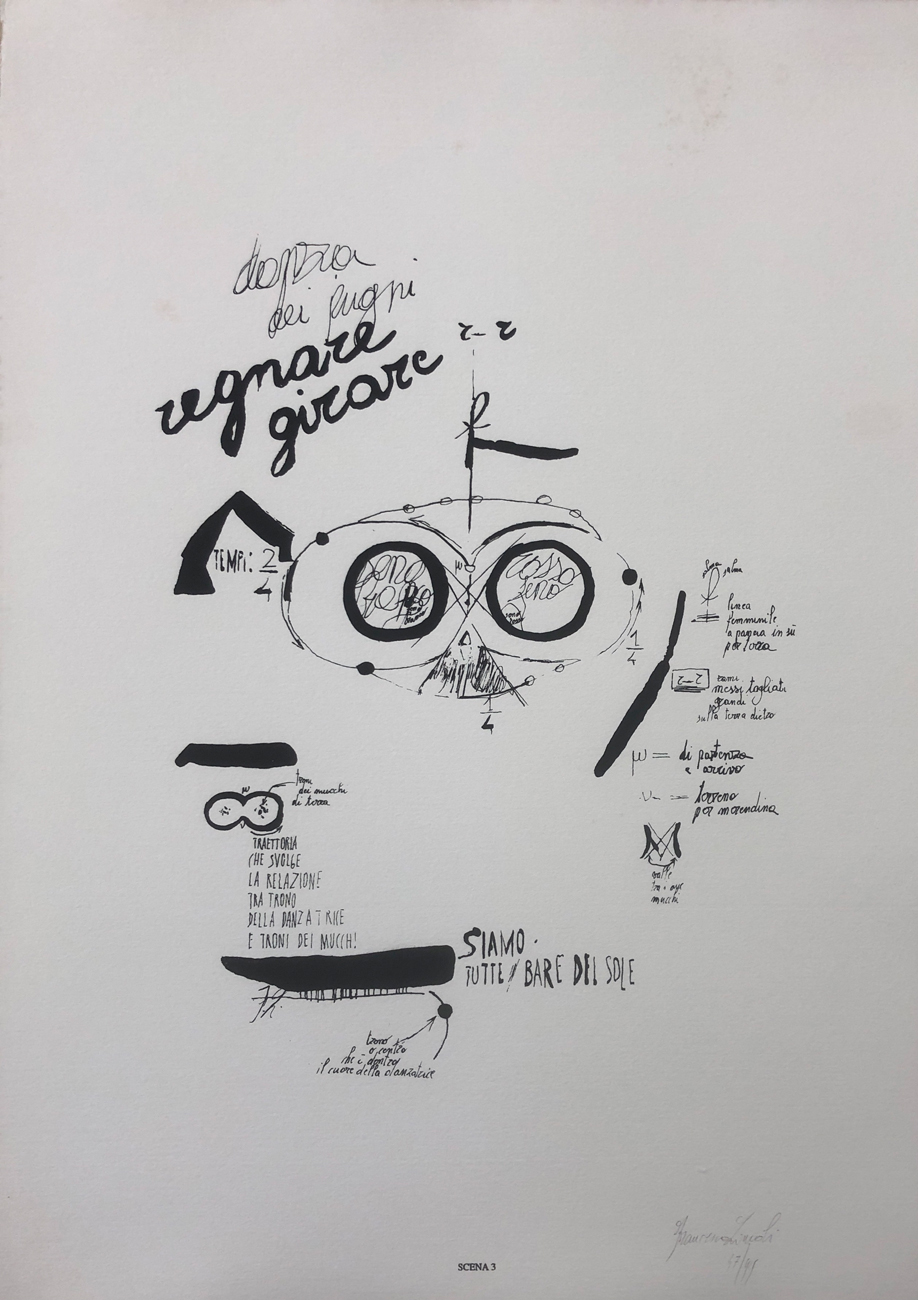 danza
dei pugni
regnare
girare
TEMPI: 2/4
zeno
cosso
zeno
1/4
1/4
linea
femminile
a pancia in sù
per orza
rami
messi tagliati
grandi
sulla terra dietro
μ = di partenza
e arrivo
terreno
per merendina
μ
troni
dei mucchi
di terra
TRAETTORIA
CHE SVOLGE
LA RELAZIONE
TRA TRONO
DELLA DANZATRICE
E TRONI DEI MUCCHI
mucchi
SIAMO.
TUTTE // BARE DEL SOLE
trono
o centro
che è dentro
il cuore della danzatrice
SCENA 3